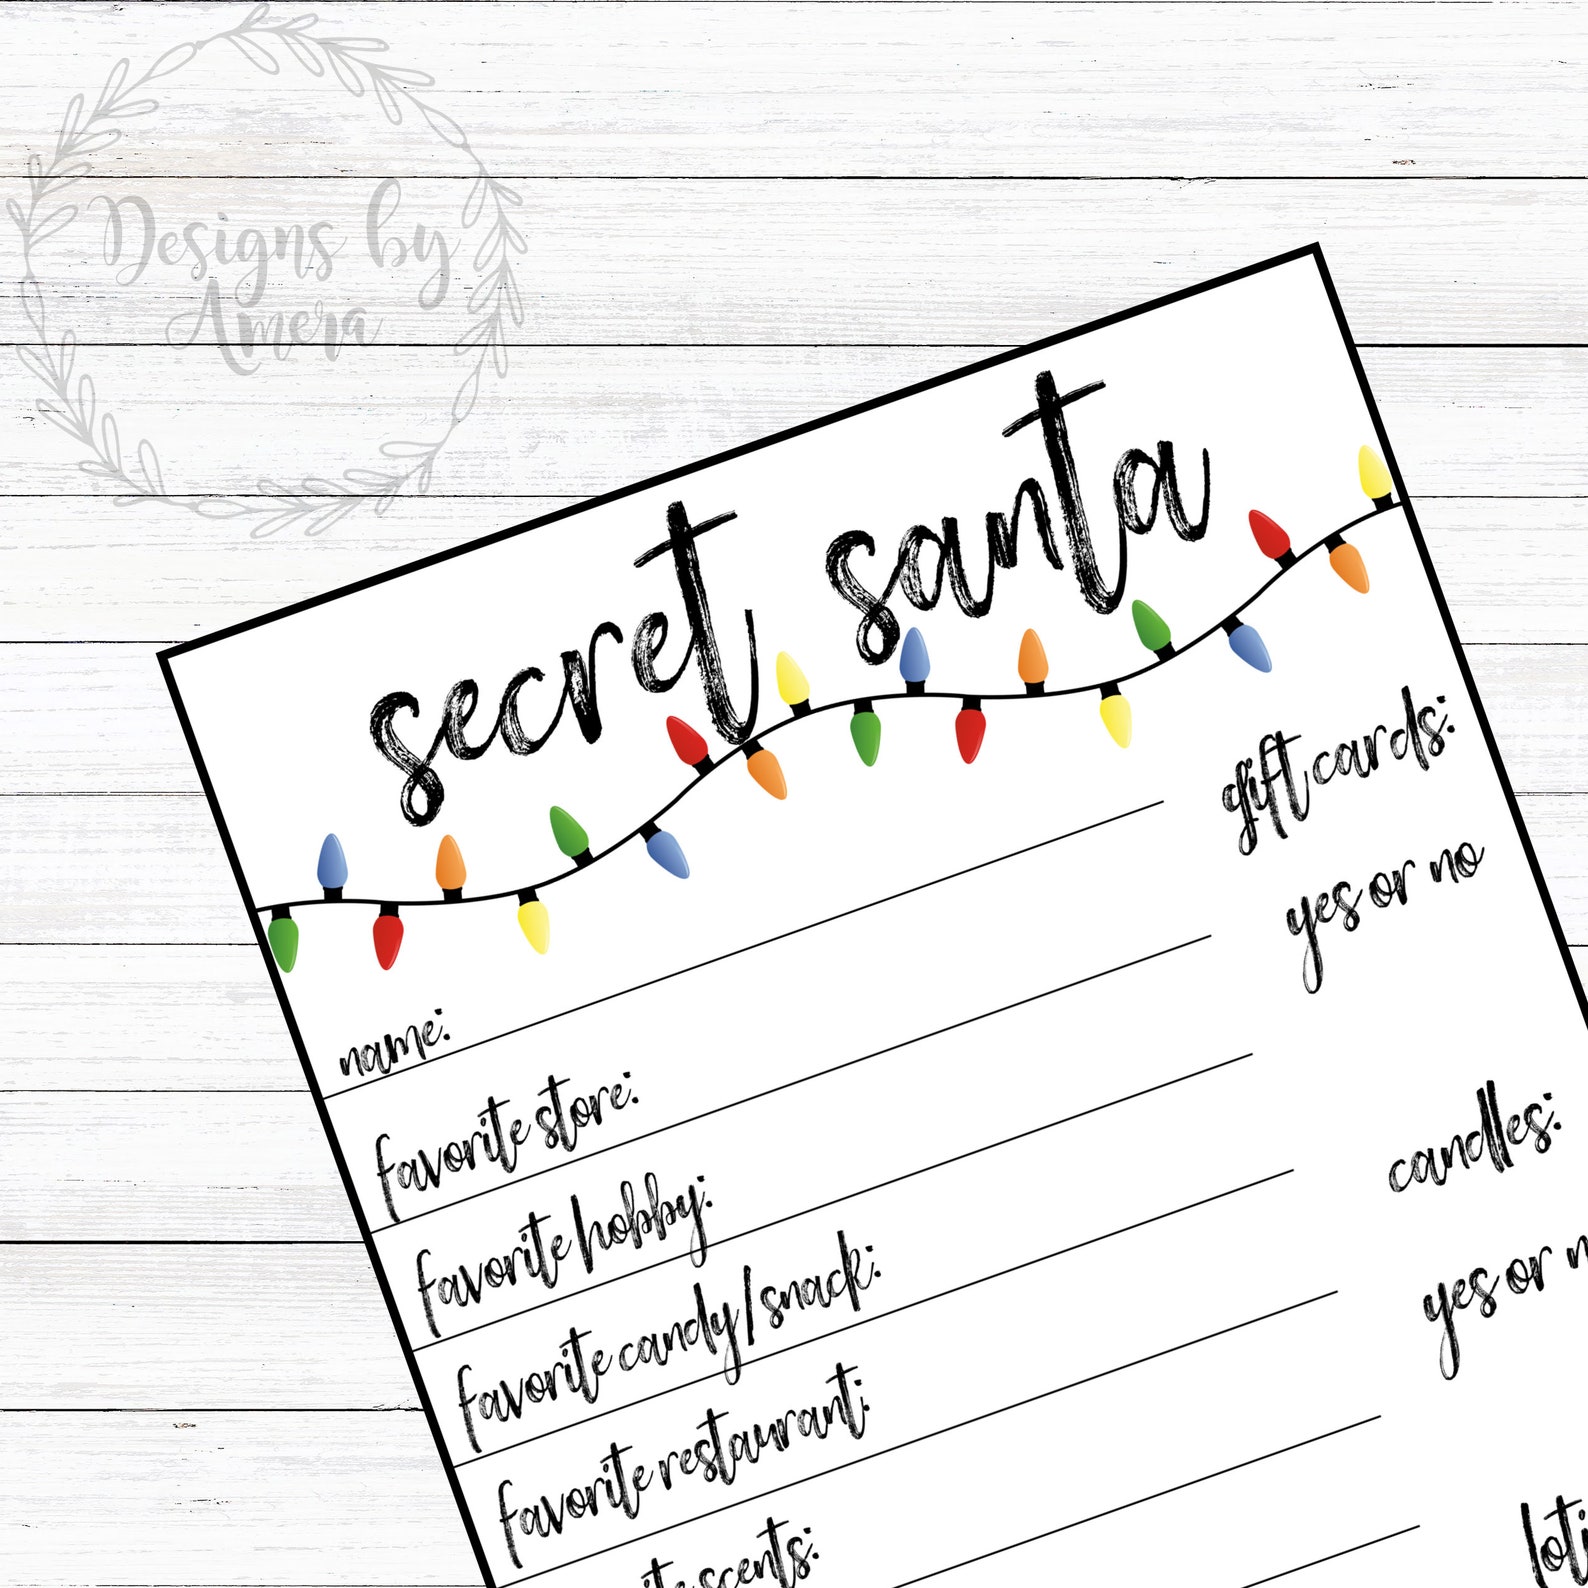 Designs by
Amera
secret santa
name:
gift cards:
yes or no
favorite store:
favorite hobby:
candles:
favorite candy/snack:
yes or
favorite restaurant:
scents: